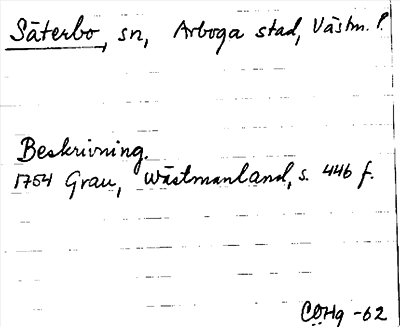 Säterbo, sn, Arboga stad, Västm. l.
Beskrivning.
1754 Grau, Wästmanland, s. 446 f.
CÖHg -62